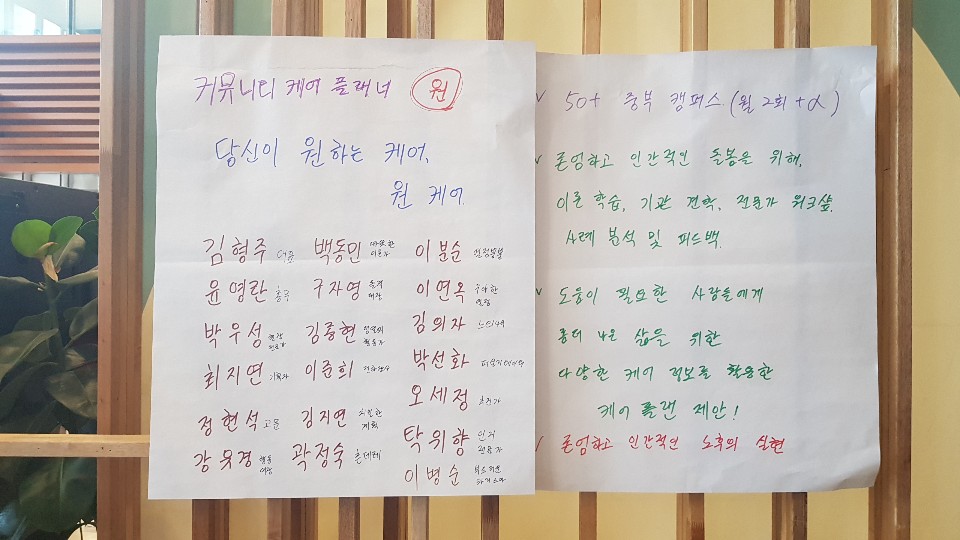 커뮤니티 케어 플래너 원
당신이 원하는 케어,
원 케어.
김형주 백동민 이분순
윤영란 총무 구자영 이연옥 우아한
박우성 김종현 김의자
최지연 기록자 이준희 박선화
오세정
정현석 고문 김지연 친절한
탁위향
강윳경 곽정숙 훈데레
이병순
v 50+ 중부 캠퍼스. (월 2회 + α)
v 존엄하고 인간적인 돌봄을 위해,
이론 학습, 기관 견학, 전문가 워크샾,
사례 분석 및 피드백.
v 도움이 필요한 사람들에게
좀더 나은 삶을 위한
다양한 케어 정보를 활용한
케어 플랜 제안!
v 존엄하고 인간적인 노후의 실현